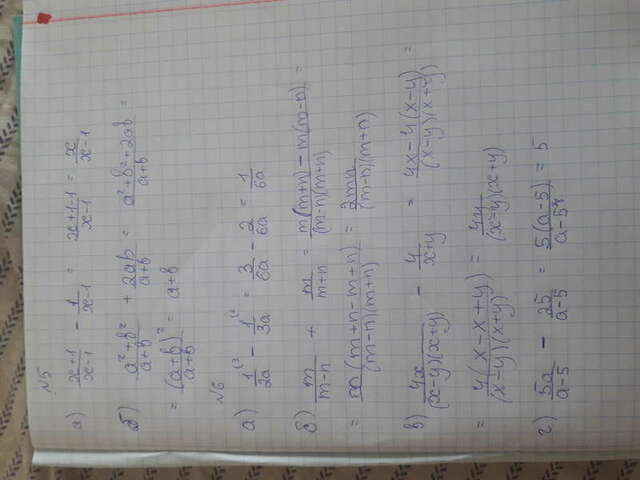 №5
а) x+1/x-1 - 1/x-1 = x+1-1/x-1 = x/x-1
б) a²+b²/a+b + 2ab/a+b = a²+b²+2ab/a+b =
= (a+b)²/a+b = a+b
№6
а) 1/2a - 1/3a = 3/6a - 2/6a = 1/6a
б) m/m-n + m/m+n = m(m+n)-m(m-n)/(m-n)(m+n) =
= m(m+n-m+n)/(m-n)(m+n) = 2mn/(m-n)(m+n)
в) 4x/(x-y)(x+y) - 4/x+y = 4x-4(x-y)/(x-y)(x+y) =
= 4(x-x+y)/(x-y)(x+y) = 4y/(x-y)(x+y)
г) 5a/a-5 - 25/a-5 = 5(a-5)/a-5 = 5